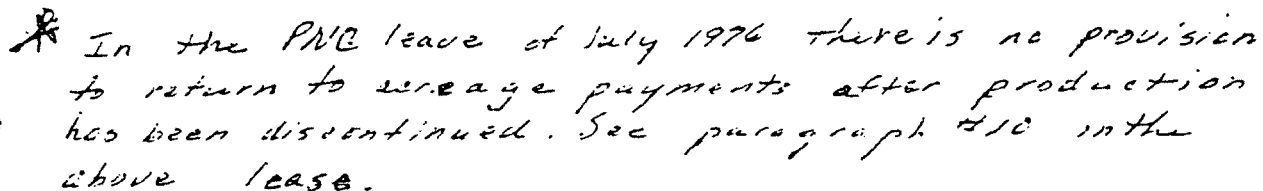 * In the PNC leave of July 1976 there is no provision
to return to acreage payments after production
has been discontinued. See paragraph #10 in the
above lease.